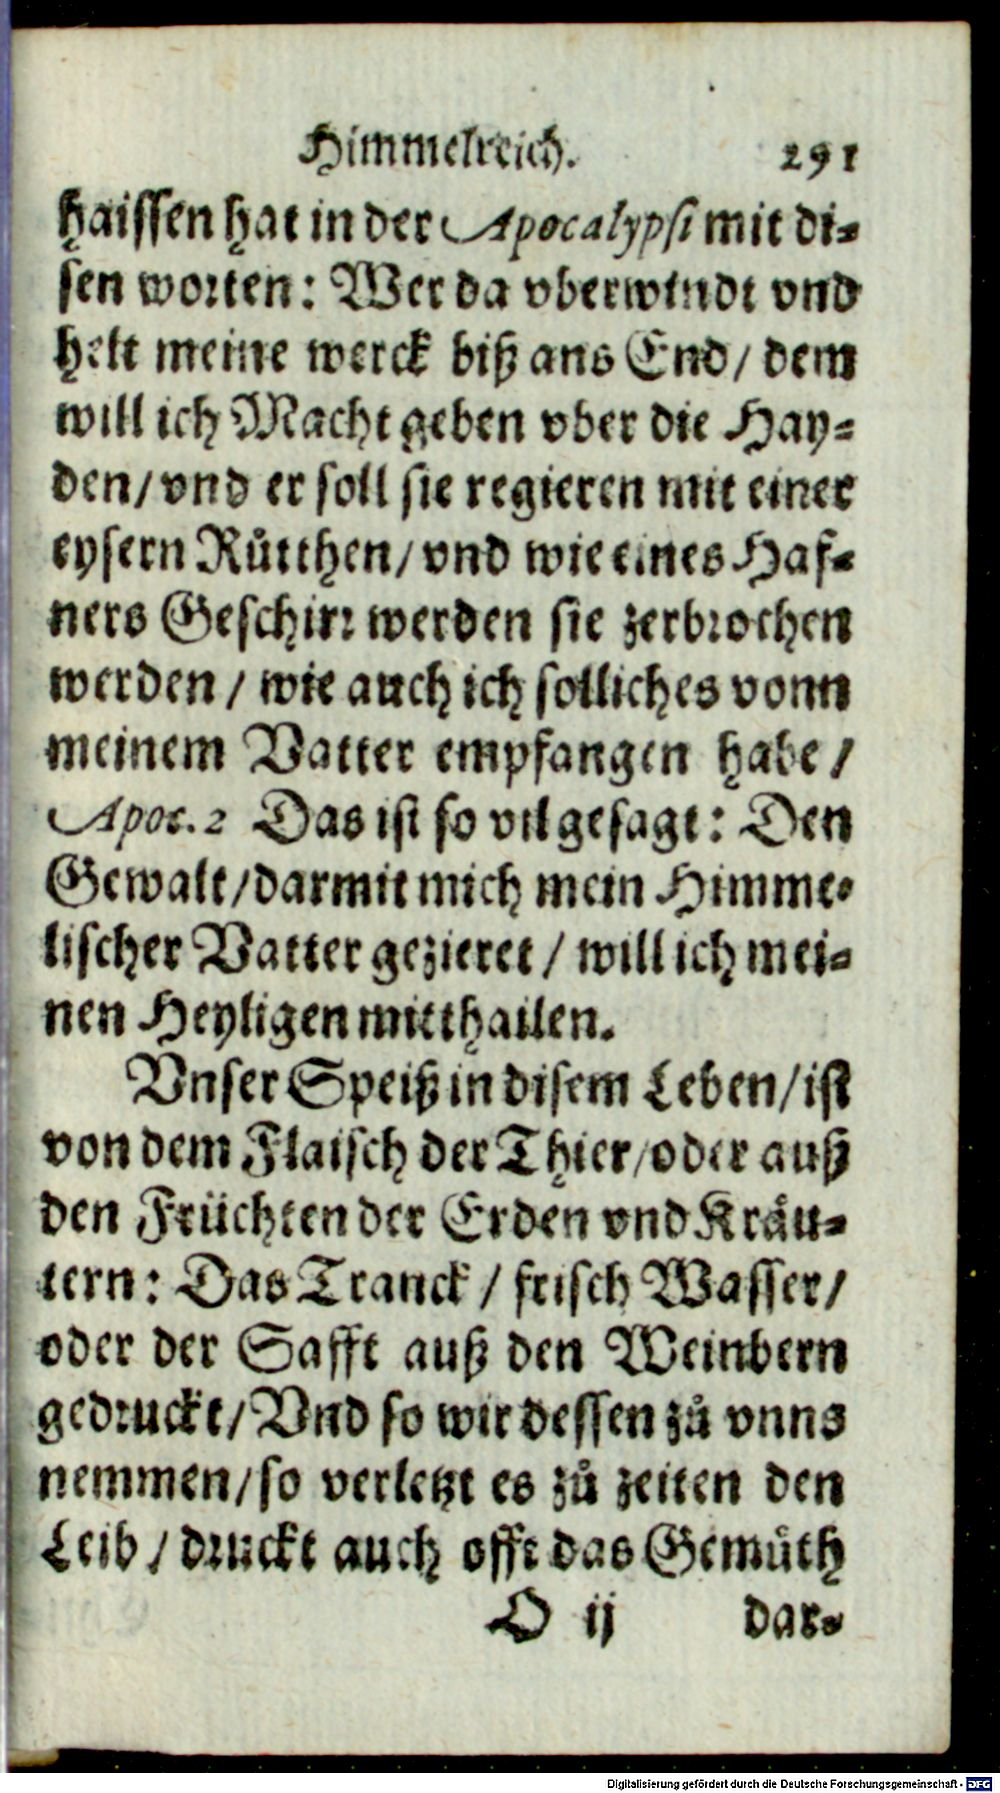 Himmelreich. 291
haissen hat in der Apocalypsi mit di-
sen worten: Wer da vberwindt vnd
helt meine werck biß ans End/ dem
will ich Macht geben vber die Hay-
den/ vnd er soll sie regieren mit einer
eysern Růtthen/ vnd wie eines Haf-
ners Geschirr werden sie zerbrochen
werden / wie auch ich solliches vonn
meinem Vatter empfangen habe /
Apoc. 2 Das ist so vil gesagt: Den
Gewalt/ darmit mich mein Himme-
lischer Vatter gezieret / will ich mei-
nen Heyligen mitthailen.
Vnser Speiß in disem Leben/ ist
von dem Flaisch der Thier/ oder auß
den Früchten der Erden vnd Kräu-
tern: Das Tranck / frisch Wasser/
oder der Safft auß den Weinbern
gedruckt/ Vnd so wir dessen zů vnns
nemmen/ so verletzt es zů zeiten den
Leib / druckt auch offt das Gemůth
O ij dar-
Digitalisierung gefördert durch die Deutsche Forschungsgemeinschaft - DFG